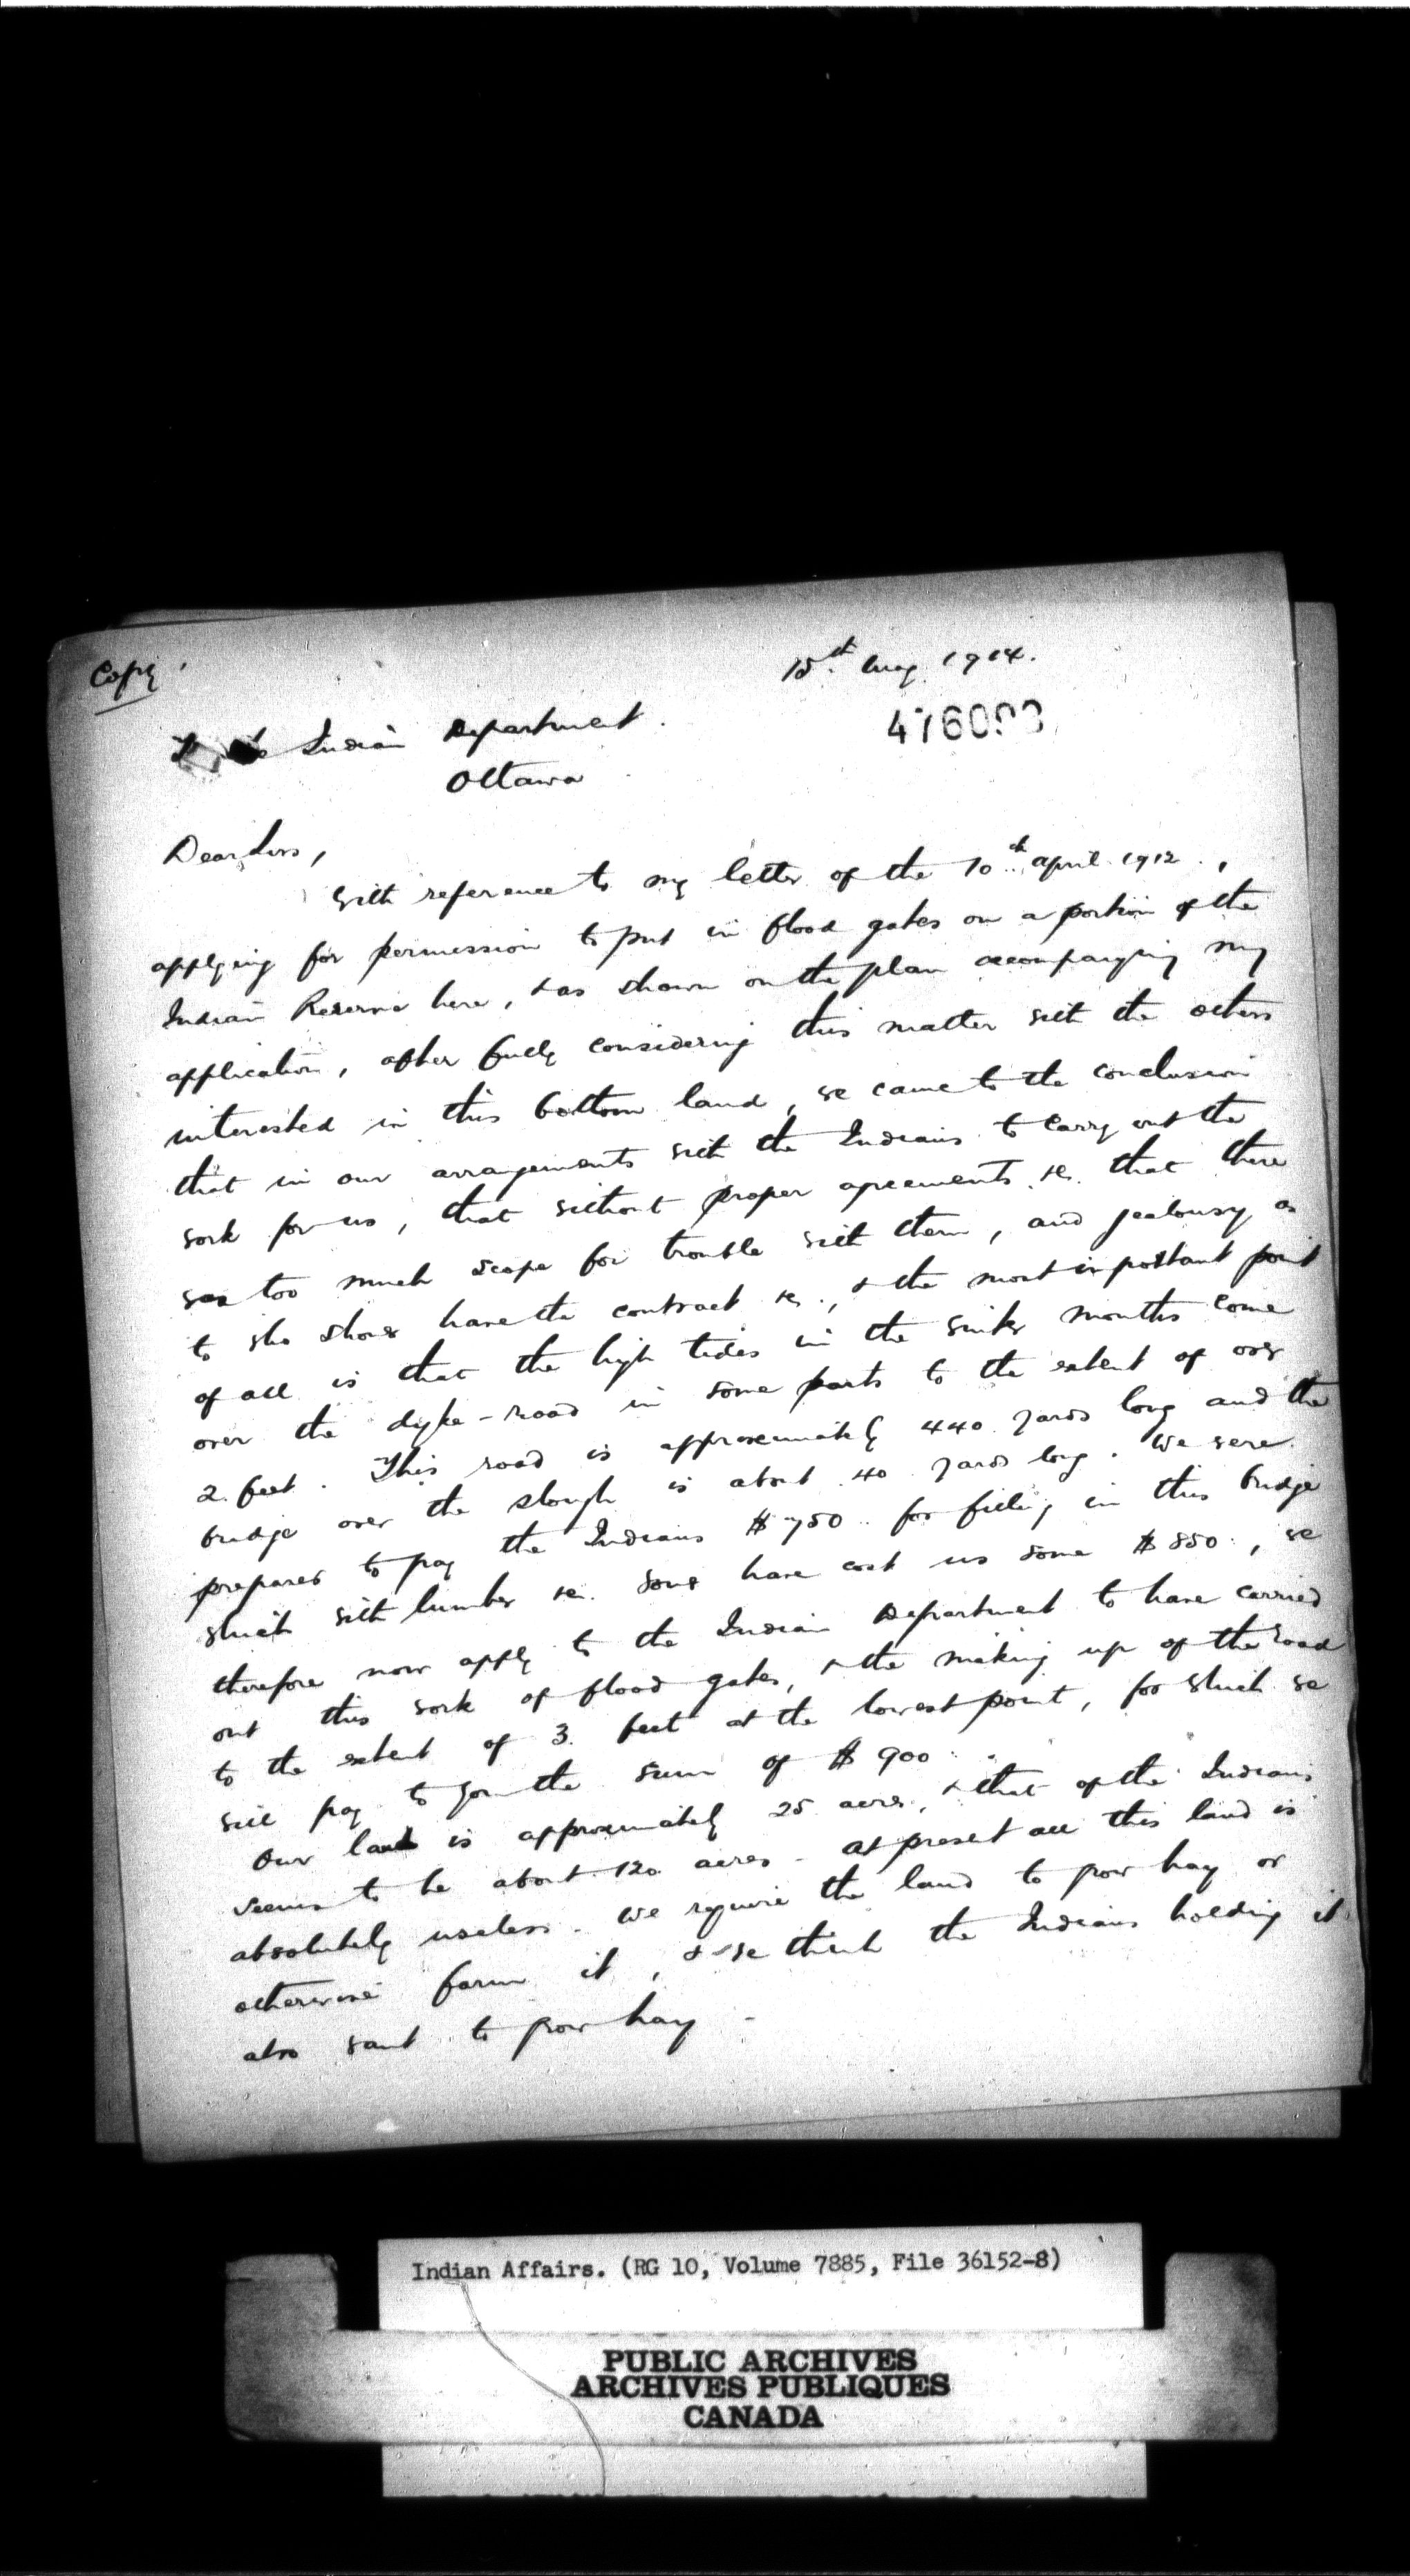 Copy
15th Aug 1914.
476093
Indian Department.
Ottawa
Dear Sirs,
With reference to my letter of the 10th April 1912.,
applying for permission to put in flood gates on a portion of the
Indian Reserve here, & as shown on the plan accompanying my
application, after fully considering this matter with the others
interested in this bottom land, we came to the conclusion
that in our arrangements with the Indians to carry out the
work for us, that without proper agreements &c. that there
was too much scope for trouble with them, and jealousy as
to who should have the contract &c., & the most important point
of all is that the high tides in the winter months come
over the dyke-road in some parts to the extent of over
2. feet. This road is approximately 440 yards long and the
bridge over the slough is about 40 yards long. We were
prepared to pay the Indians $750.. for filling in this bridge
which with lumber &c. would have cost us some $850., we
therefore now apply to the Indian Department to have carried
out this work of flood gates, & the making up of the road
to the extent of 3. feet at the lowest point, for which we
will pay to you the sum of $900..
Our land is approximately 25 acres, & that of the Indians
seems to be about 120 acres - at present all this land is
absolutely useless. We require the land to grow hay or
otherwise farm it, & we think the Indians holding it
also want to grow hay -
Indian Affairs. (RG 10, Volume 7885, File 36152-8)
PUBLIC ARCHIVES
ARCHIVES PUBLIQUES
CANADA